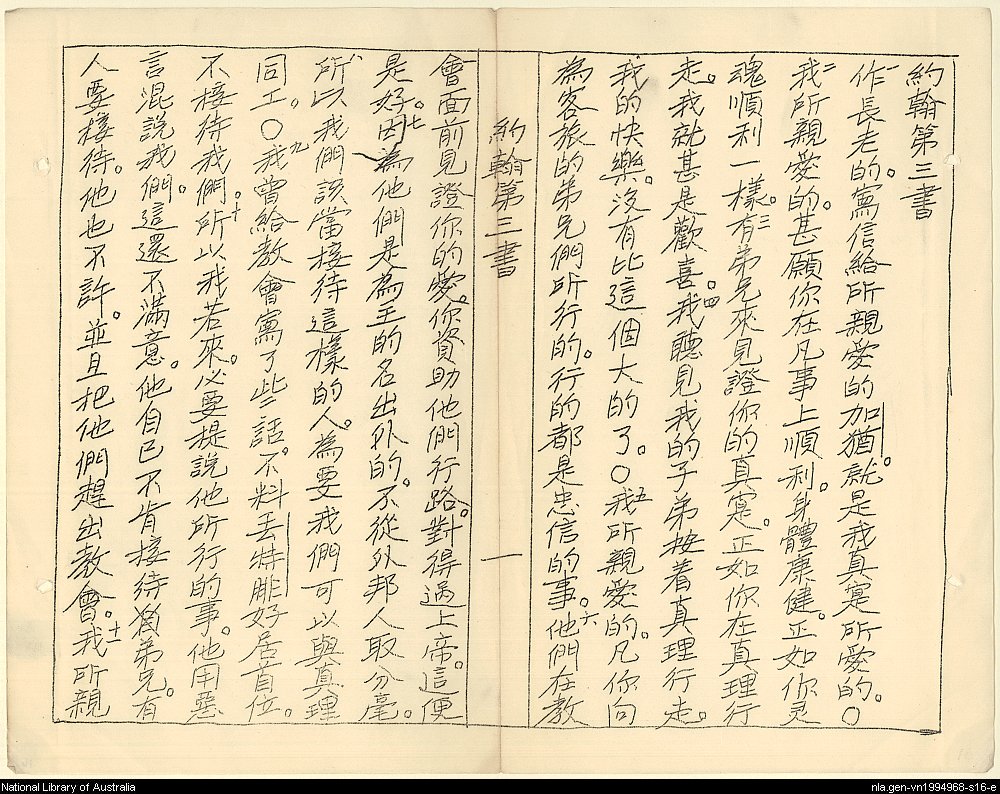 約翰第三書
一作長老的。寫信給所親愛的加猶。就是我真寔所愛的。〇
二我所親愛的。甚願你在凡事上順利。身體康健。正如你灵
魂順利一樣。三有弟兄來見證你的真寔。正如你在真理行
走。我就甚是歡喜。四我聽見我的子弟按着真理行走。
我的快樂。沒有比這個大的了。〇五我所親愛的。凡你向
為客旅的弟兄們所行的。行的都是忠信的事。六他們在教
約翰第三書 一
會面前見證你的愛。你資助他們行路。對得過上帝。這便
是好。七因為他們是為主的名出外的。不從外邦人取分毫。
八所以我們該當接待這樣的人。為要我們可以與真理
同工。〇九我曾給教會寫了些話。不料丟特腓好居首位。
不接待我們。十所以我若來。必要提說他所行的事。他用惡
言混說我們。這還不滿意。他自己不肯接待弟兄。有
人要接待。他也不許。並且把他們趕出教會。十一我所親
National Library of Australia
nla.gen-vn1994968-s16-e